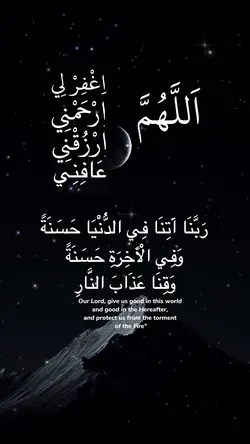 اَللَّهُمَّ
اِغْفِرْ لِي
ارْحَمْنِي
ارْزُقْنِي
عَافِنِي
رَبَّنَا آتِنَا فِي الدُّنْيَا حَسَنَةً
وَفِي الْأَخِرَةِ حَسَنَةً
وَقِنَا عَذَابَ النَّارِ
Our Lord, give us good in this world
and good in the Hereafter,
and protect us from the torment
of the Fire"